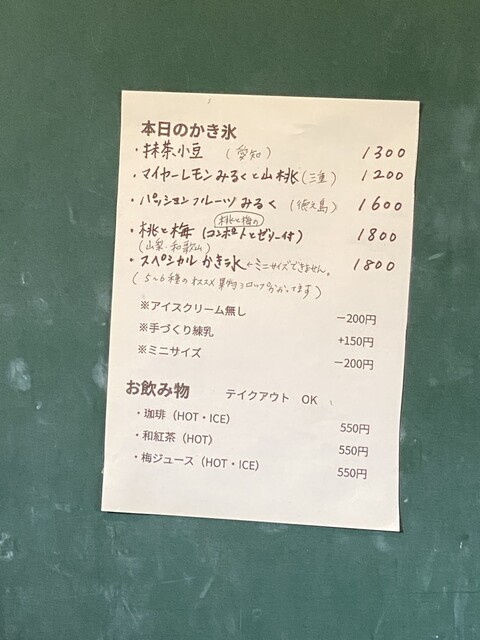 本日のかき氷
・抹茶小豆 (愛知) 1300
・マイヤーレモンみるくと山桃(三重) 1200
・パッションフルーツみるく (徳之島) 1600
桃と梅の
・桃と梅 (コンポートとゼリー付) 1800
(山梨・和歌山)
・スペシャルかき氷 ←ミニサイズできません。 1800
(5〜6種のオススメ果物シロップがかかってます)
※アイスクリーム無し −200円
※手づくり練乳 +150円
※ミニサイズ −200円
お飲み物 テイクアウト OK
・珈琲（HOT・ICE） 550円
・和紅茶（HOT） 550円
・梅ジュース（HOT・ICE） 550円